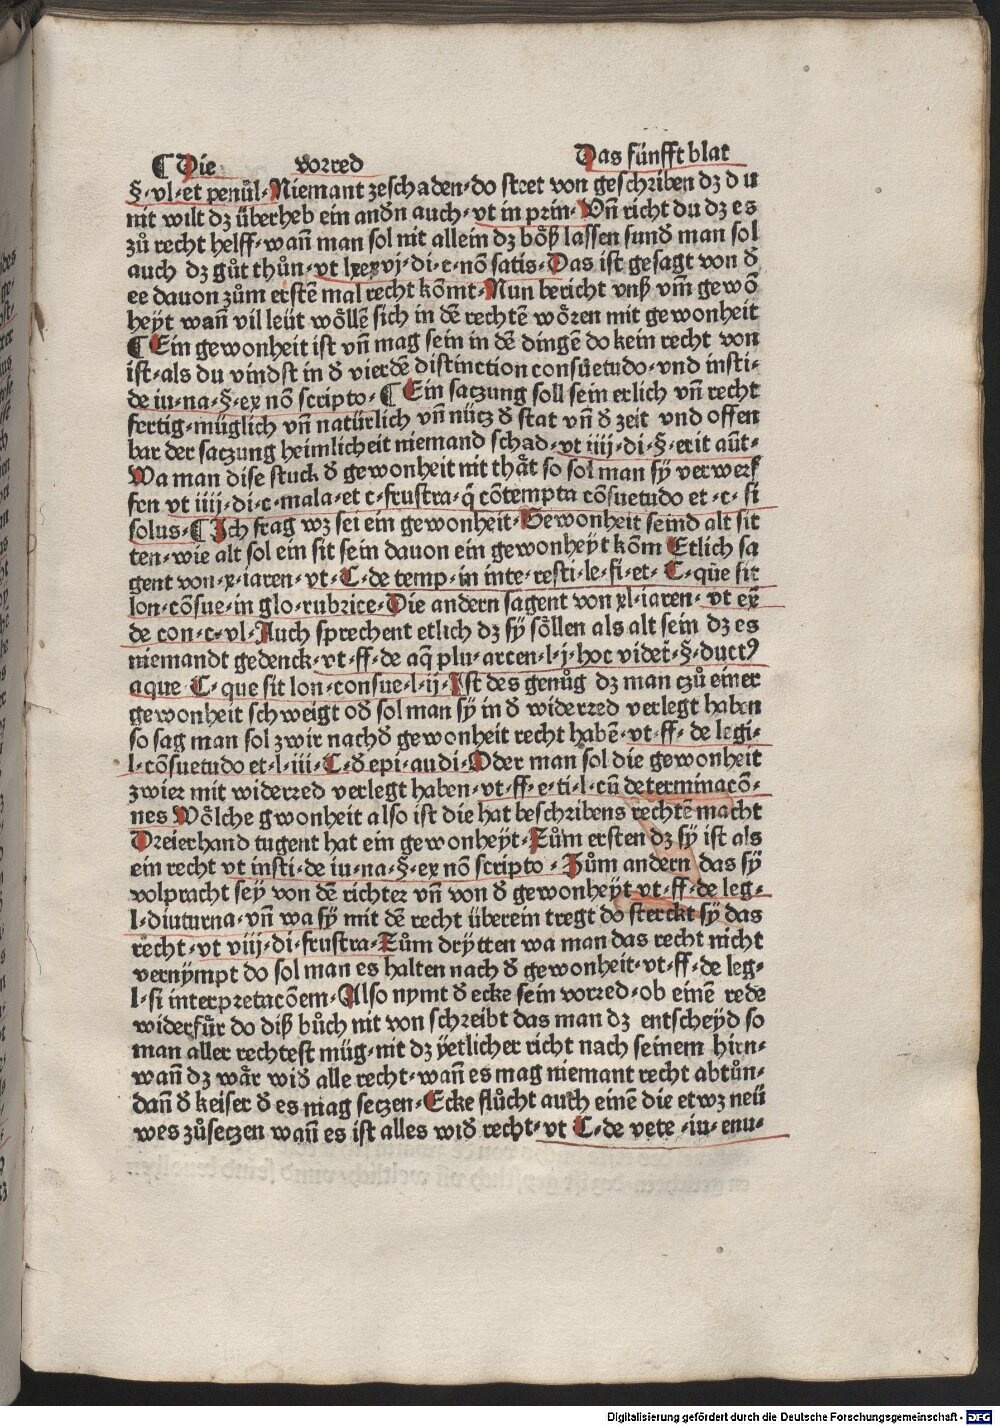 ¶ Die vorred Das fünfft blat
§·vl·et penůl·Niemant zeschaden·do steet von geschriben dz du
nit wilt dz überheb ein andn̄ auch·vt in prin·Vn̄ richt du dz es
zů recht helff·wan̄ man sol nit allein dz bőß lassen sund̄ man sol
auch dz gůt thůn·vt lxxxvj·di·c·nō satis·Das ist gesagt von d̄
ee dauon zům erstē mal recht kōmt·Nun bericht vnß vm̄ gewō
heyt wan̄ vil leüt wöllē sich in dē rechtē wőren mit gewonheit
¶ Ein gewonheit ist vn̄ mag sein in dē dingē do kein recht von
ist·als du vindst in d̄ vierdē distinction consůetudo·vnd insti-
de iu·na·§·ex nō scripto·¶ Ein saczung soll sein erlich vn̄ recht
fertig·müglich vn̄ natürlich vn̄ nücz d̄ stat vn̄ d̄ zeit vnd offen
bar der saczung heimlicheit niemand schad·vt iiij·di·§·erit aūt·
Wa man dise stuck d̄ gewonheit nit thät so sol man sy verwerf
fen vt iiij·di·c·mala·et c·frustra·q̄ cōtempta cōsuetudo et·c·si
solus·¶ Ich frag wz sei ein gewonheit·Gewonheit seind alt sit
ten·wie alt sol ein sit sein dauon ein gewonheyt kōm Etlich sa
gent von·x·iaren·vt·C·de temp·in inte·resti·le·fi·et·C·que sit
lon·cōsue·in glo·rubrice·Die andern sagent von xl·iaren·vt ex̄
de con·c·vl·Auch sprechent etlich dz sy sőllen als alt sein dz es
niemandt gedenck·vt·ff·de aq̄ plu·arcen·l·j·hoc videt̄·§·duct9
aque·C·que sit lon·consue·l·ij·Ist des genůg dz man czů einer
gewonheit schweigt od̄ sol man sy in d̄ widerred verlegt haben
so sag man sol zwir nachd̄ gewonheit recht habē·vt·ff·de legi·
l·cōsuetudo et·l·iii·C·d̄ epi·audi·Oder man sol die gewonheit
zwier mit widerred verlegt haben·vt·ff·e·ti·l·cū determinacō-
nes Wőlche gwonheit also ist die hat beschribens rechtē macht
Dreierhand tugent hat ein gewonheyt·Zům ersten dz sy ist als
ein recht vt insti·de iu·na·§·ex nō scripto·Zům andern das sy
volpracht sey von dē richter vn̄ von d̄ gewonheyt vt·ff·de leg·
l·diuturna·vn̄ wa sy mit dē recht überein tregt do sterckt sy das
recht·vt viij·di·frustra·Zům drytten wa man das recht nicht
vernympt do sol man es halten nach d̄ gewonheit·vt·ff·de leg·
l·si interpretacōem·Also nymt d̄ ecke sein vorred·ob einē rede
widerfür do diß bůch nit von schreibt das man dz entscheyd so
man aller rechtest müg·nit dz yetlicher richt nach seinem hirn·
wan̄ dz wär wid̄ alle recht·wan̄ es mag niemant recht abtůn·
dan̄ d̄ keiser d̄ es mag seczen·Ecke flůcht auch einē die etwz neü
wes zůseczen wan̄ es ist alles wid̄ recht·vt C·de vete·iu·enu·
Digitalisierung gefördert durch die Deutsche Forschungsgemeinschaft - DFG